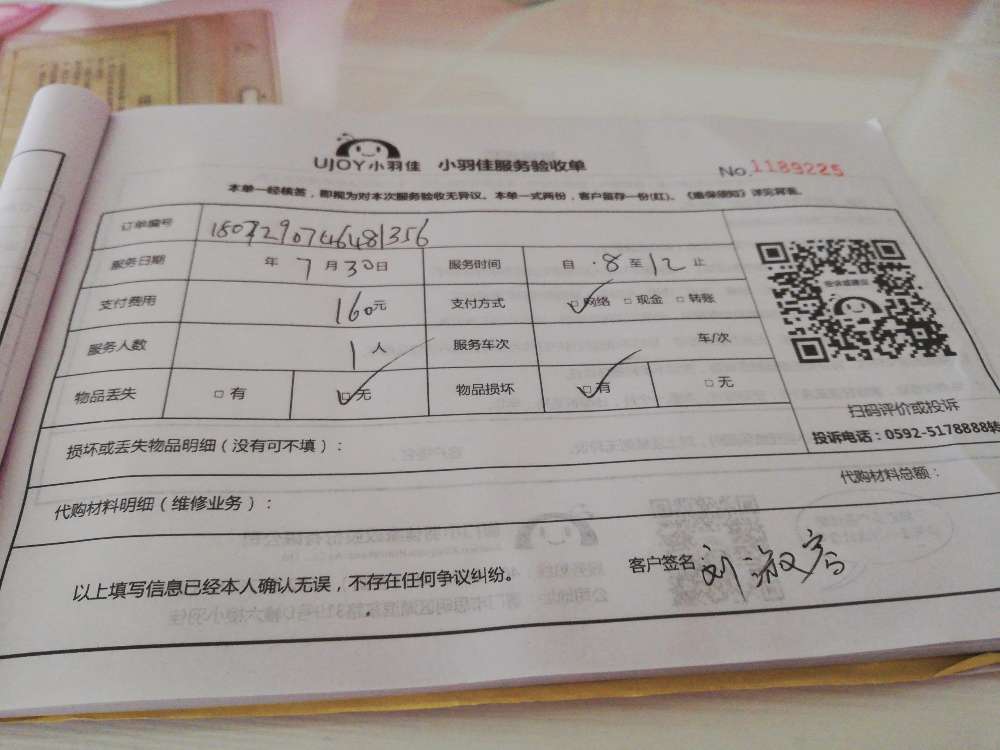 UJOY小羽佳 小羽佳服务验收单 No.1189225
本单一经核签，即视为对本次服务验收无异议。本单一式两份，客户留存一份(红)。《维保须知》详见背面。
订单编号 1807290746481356
服务日期 年 7 月 30 日 服务时间 自 8 至 12 止
支付费用 160 元 支付方式 □网络 □现金 □转账
服务人数 1 人 服务车次 车/次
物品丢失 □有 □无 物品损坏 □有 □无
投诉或建议
扫码评价或投诉
投诉电话：0592-5178888转
损坏或丢失物品明细（没有可不填）：
代购材料明细（维修业务）： 代购材料总额：
以上填写信息已经本人确认无误，不存在任何争议纠纷。 客户签名：刘淑